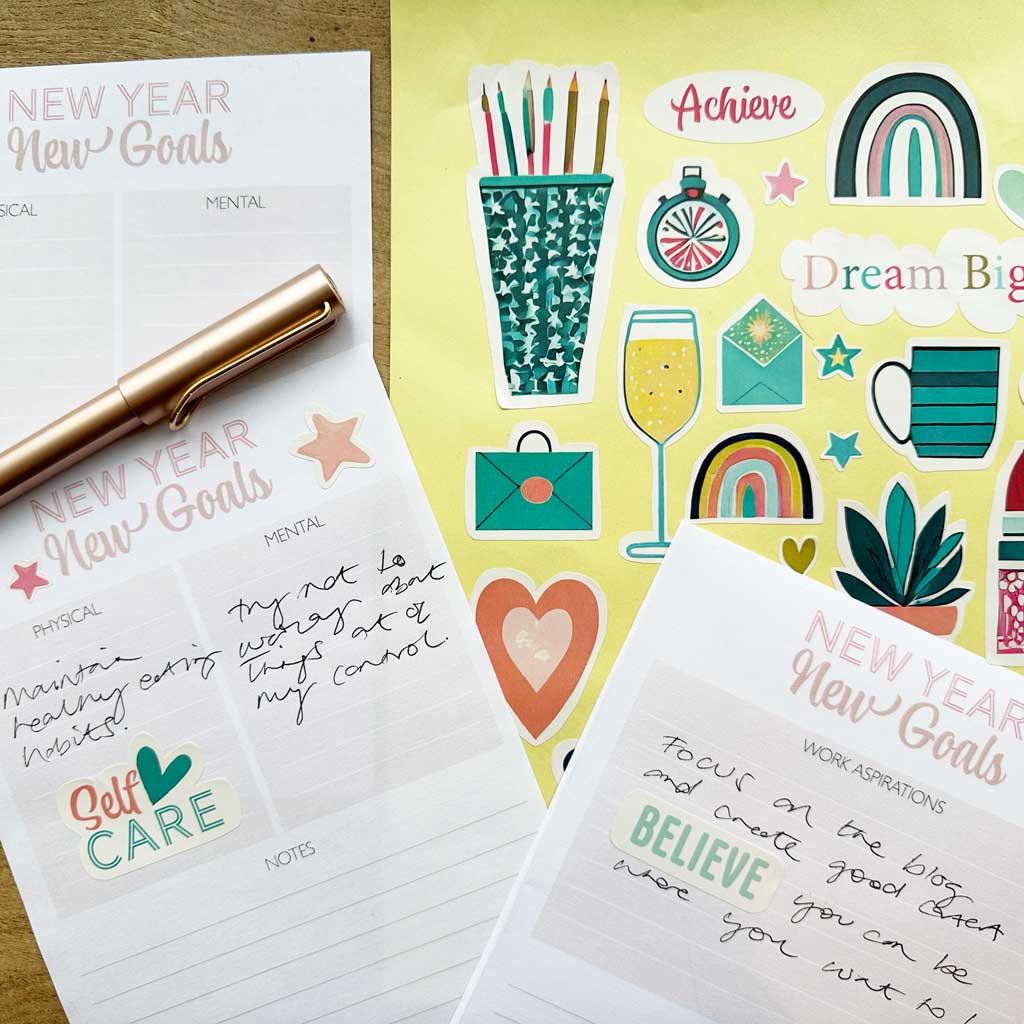 NEW YEAR
New Goals
SICAL
MENTAL
Achieve
Dream Big
NEW YEAR
New Goals
PHYSICAL
MENTAL
Maintain
healthy eating
habits.
try not to
worry about
things out of
my control.
Self
CARE
NOTES
NEW YEAR
New Goals
WORK ASPIRATIONS
Focus on the blog
and create good content
BELIEVE
you can be
where you want to